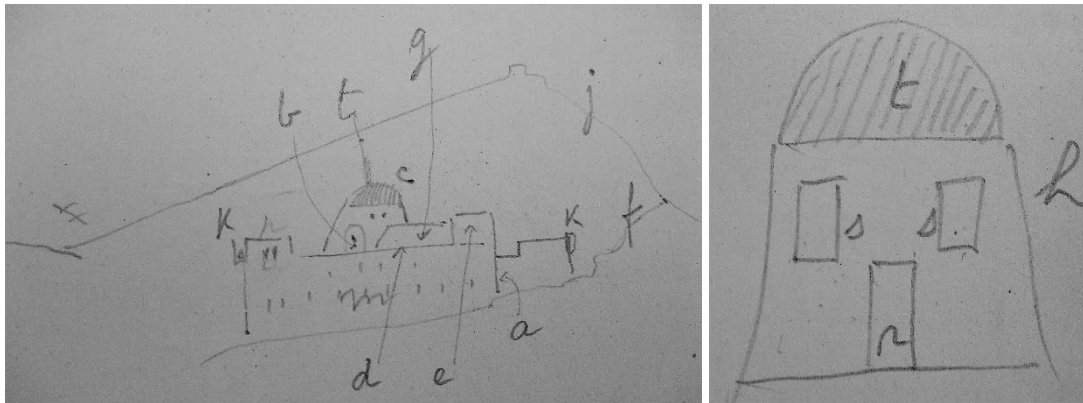 g
b t
j
c
x
K K
f
a
d e
t
h
s s
r